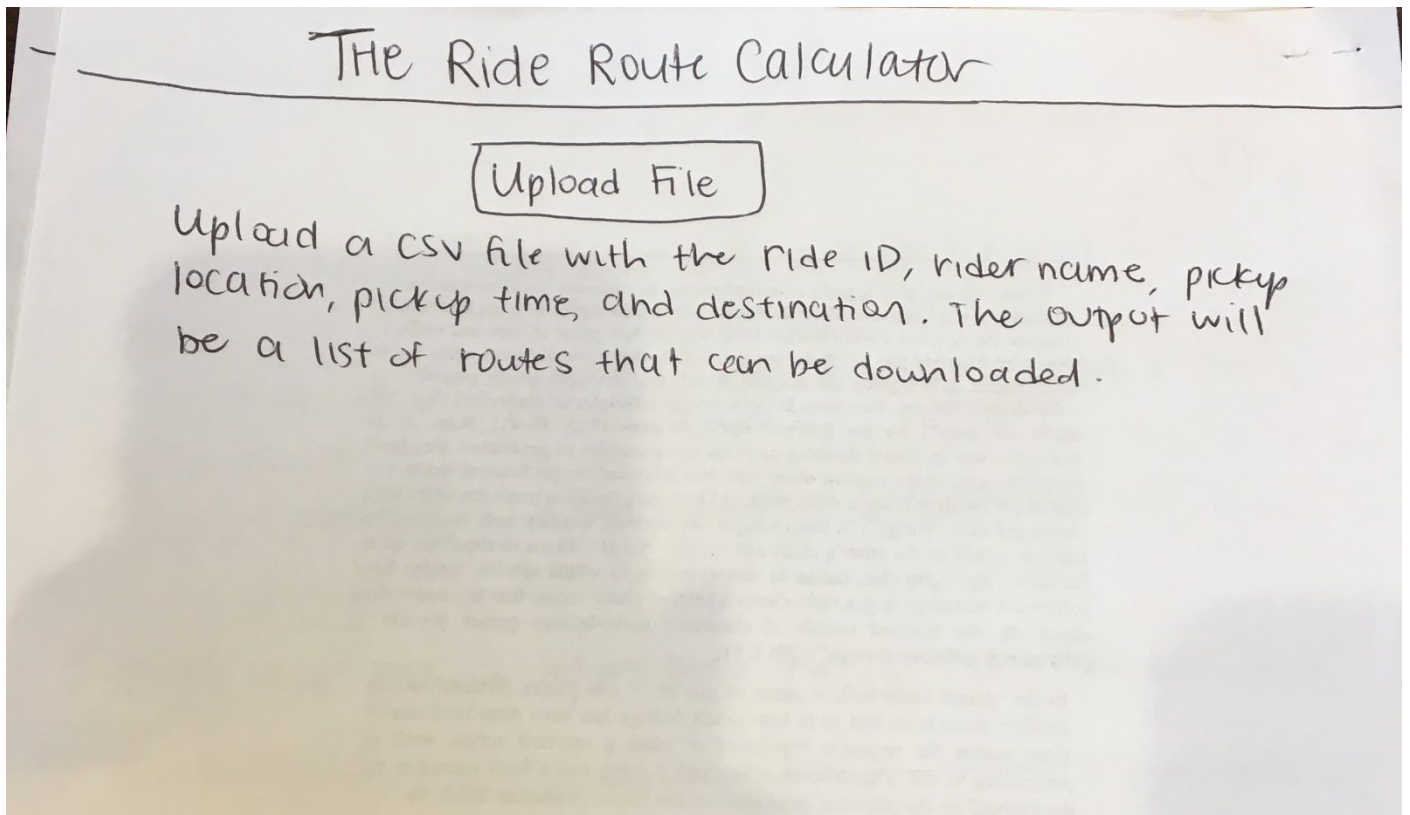 THe Ride Route Calculator
Upload File
Upload a CSV file with the ride ID, rider name, pickup
location, pickup time, and destination. The output will
be a list of routes that can be downloaded.